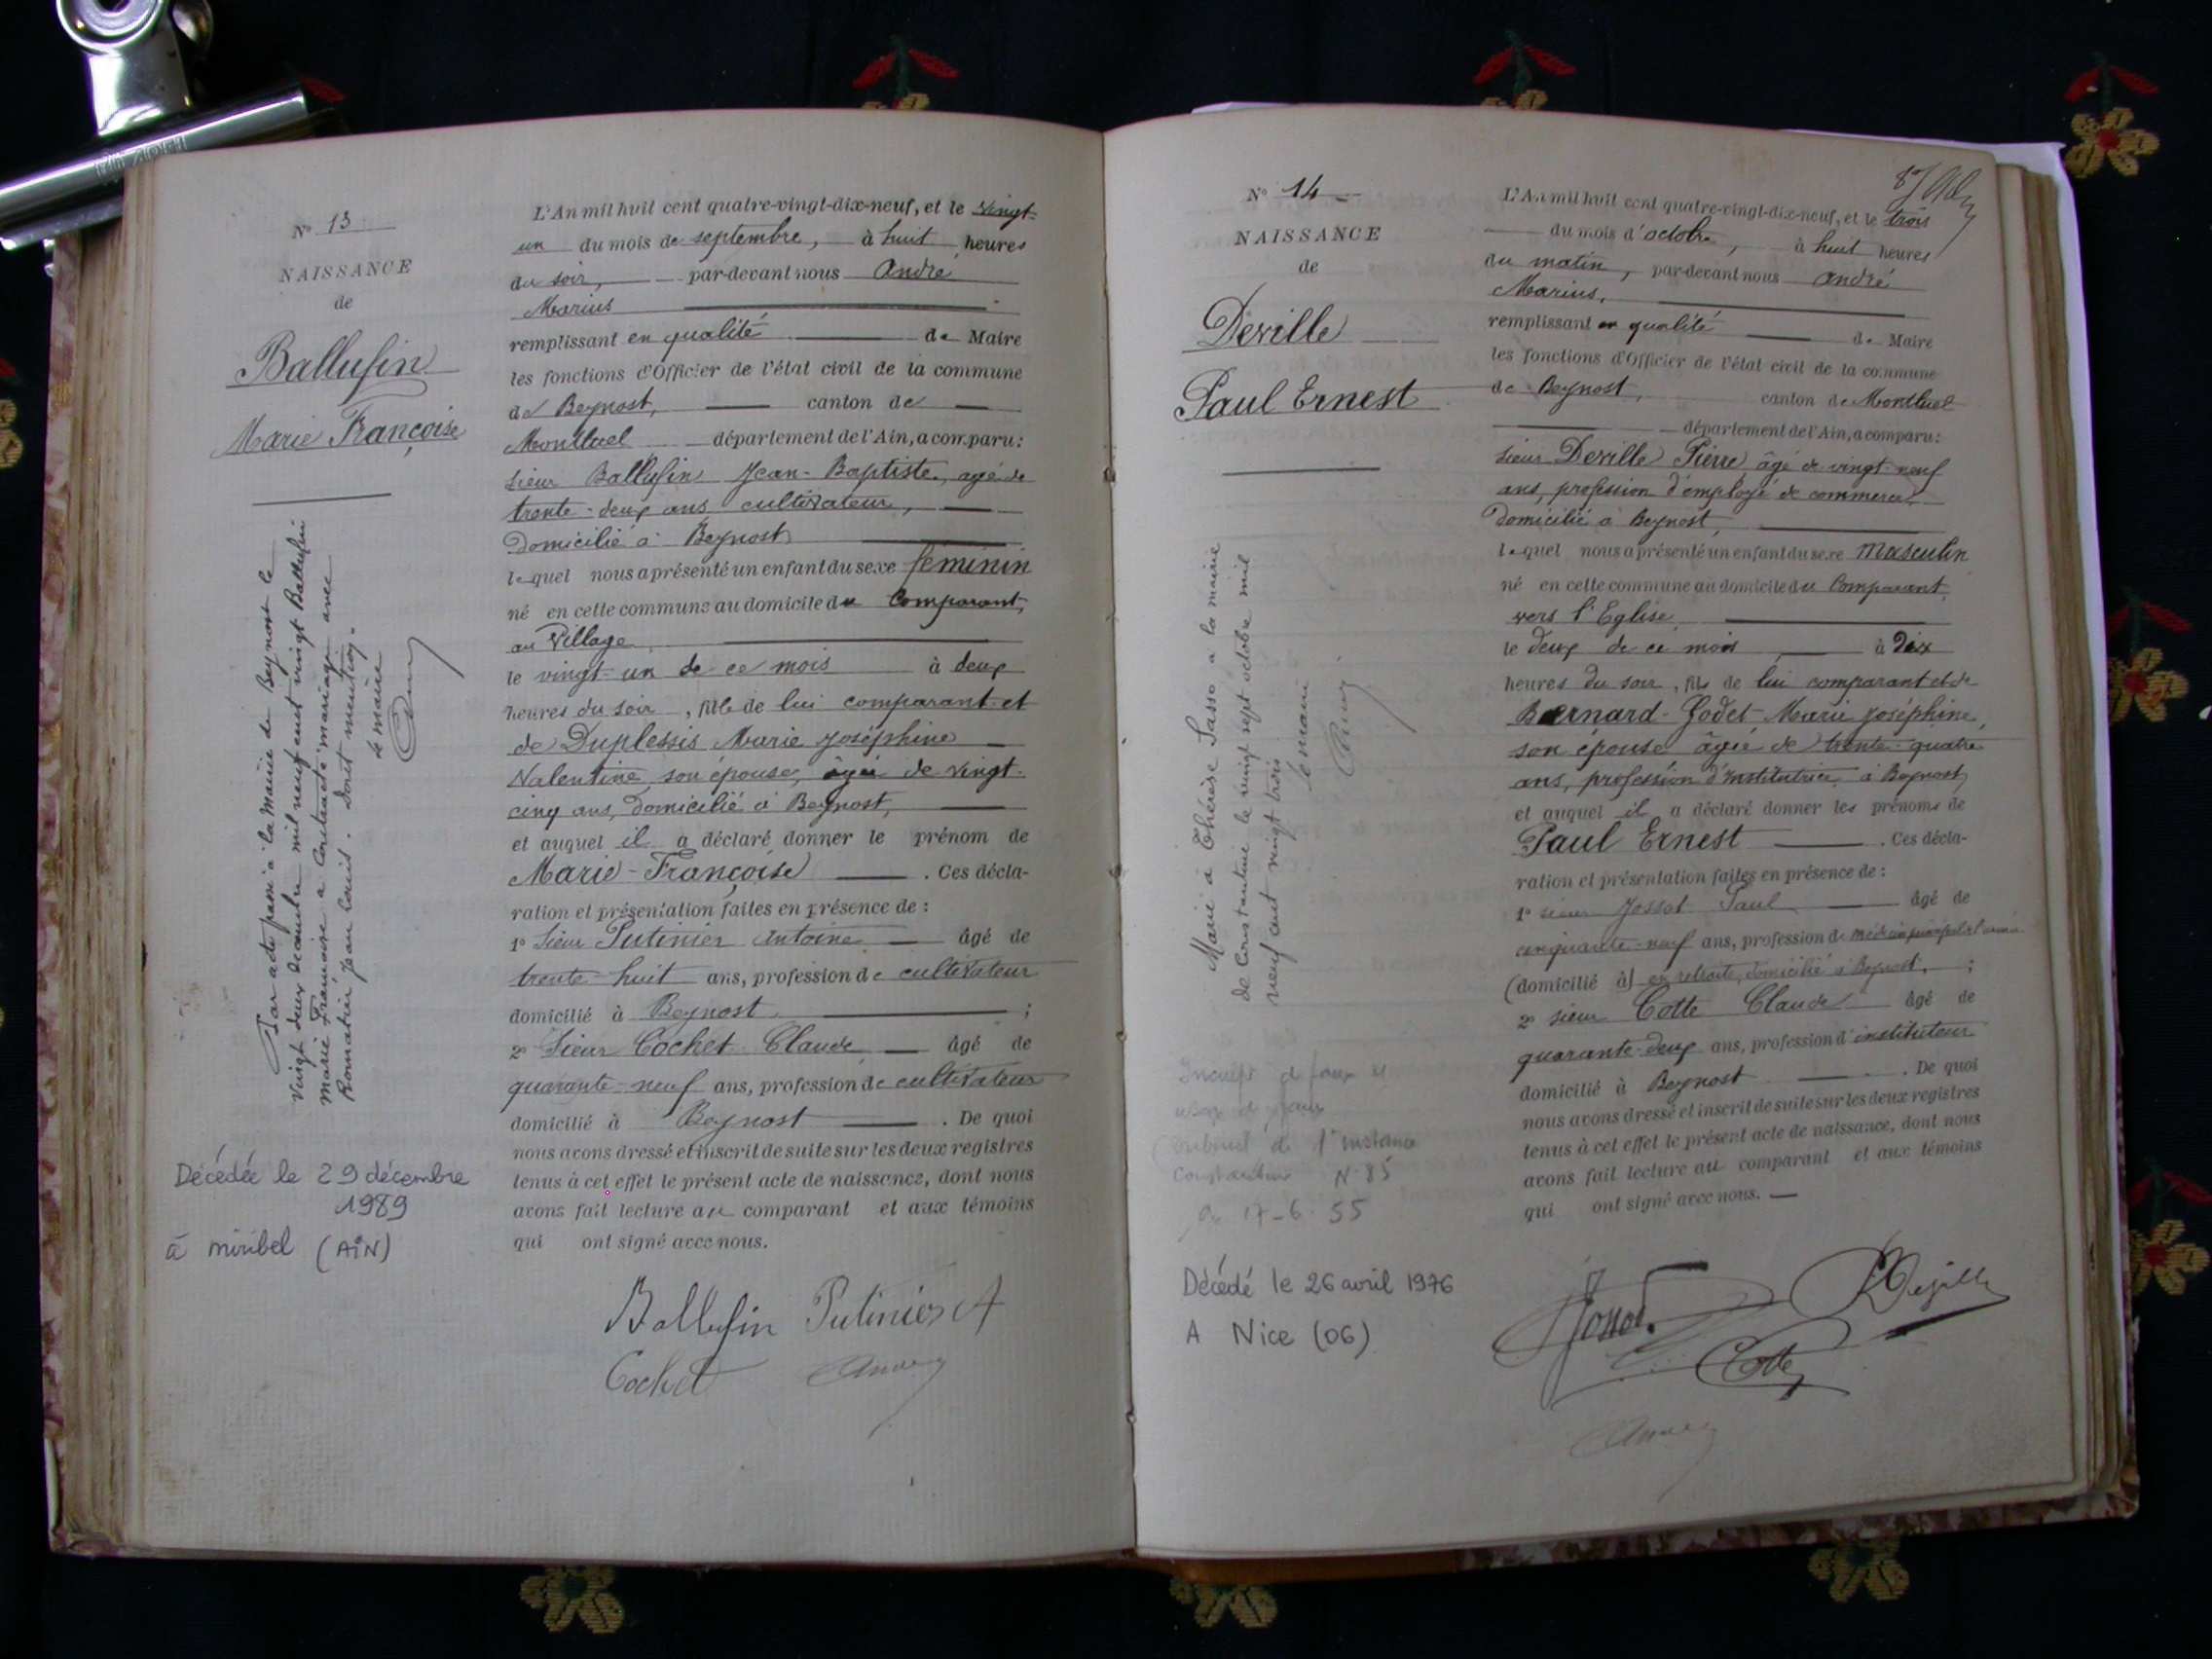 N° 13
NAISSANCE
de
Ballufin
Marie Françoise
Par acte passé à la mairie de Beynost le
vingt deux décembre mil neuf cent vingt Ballufin
Marie Françoise a contracté mariage avec
Romatier Jean Louis. Dont mention.
Le maire
Décédée le 29 décembre
1989
à miribel (AIN)
L'An mil huit cent quatre-vingt-dix-neuf, et le vingt-
un du mois de septembre, à huit heures
du soir, par-devant nous André
Marius
remplissant en qualité de Maire
les fonctions d'Officier de l'état civil de la commune
de Beynost, canton de
Montluel département de l'Ain, a comparu:
sieur Ballufin Jean-Baptiste, agé de
trente-deux ans cultivateur,
domicilié à Beynost
lequel nous a présenté un enfant du sexe féminin
né en cette commune au domicile du Comparant,
au Village
le vingt-un de ce mois à deux
heures du soir, fille de lui comparant et
de Duplessis Marie Joséphine
Valentine son épouse, âgée de vingt-
cinq ans, domicilié à Beynost,
et auquel il a déclaré donner le prénom de
Marie-Françoise . Ces décla-
ration et présentation faites en présence de :
1° Sieur Putinier Antoine âgé de
trente-huit ans, profession de cultivateur
domicilié à Beynost ;
2° Sieur Cochet Claude âgé de
quarante-neuf ans, profession de cultivateur
domicilié à Beynost . De quoi
nous avons dressé et inscrit de suite sur les deux registres
tenus à cet effet le présent acte de naissance, dont nous
avons fait lecture au comparant et aux témoins
qui ont signé avec nous.
Ballufin Putinier A
Cochet
N° 14
NAISSANCE
de
Deville
Paul Ernest
Marié à Thérèse Sasso a la mairie
de Constantine le vingt sept octobre mil
neuf cent vingt trois
Le maire
de faux et
usage de faux
tribunal de 1° instance
Constantine N° 85
17-6-55
Décédé le 26 avril 1976
A Nice (06)
L'An mil huit cent quatre-vingt-dix-neuf, et le trois
du mois d'octobre, à huit heures
du matin, par-devant nous André
Marius,
remplissant en qualité de Maire
les fonctions d'Officier de l'état civil de la commune
de Beynost, canton de Montluel
département de l'Ain, a comparu:
sieur Deville Pierre âgé de vingt-neuf
ans, profession d'employé de commerce
domicilié à Beynost,
lequel nous a présenté un enfant du sexe Masculin
né en cette commune au domicile du Comparant,
vers l'Eglise
le deux de ce mois à Dix
heures du soir, fils de lui comparant et de
Bernard-Godet Marie Joséphine,
son épouse âgée de trente-quatre
ans, profession d'institutrice à Beynost,
et auquel il a déclaré donner les prénoms de
Paul Ernest . Ces décla-
ration et présentation faites en présence de :
1° sieur Jossot Paul âgé de
cinquante-neuf ans, profession de médecin principal
(domicilié à) en retraite, domicilié à Beynost, ;
2° sieur Cotte Claude âgé de
quarante-deux ans, profession d'instituteur
domicilié à Beynost . De quoi
nous avons dressé et inscrit de suite sur les deux registres
tenus à cet effet le présent acte de naissance, dont nous
avons fait lecture au comparant et aux témoins
qui ont signé avec nous.
Jossot P Deville
Cotte